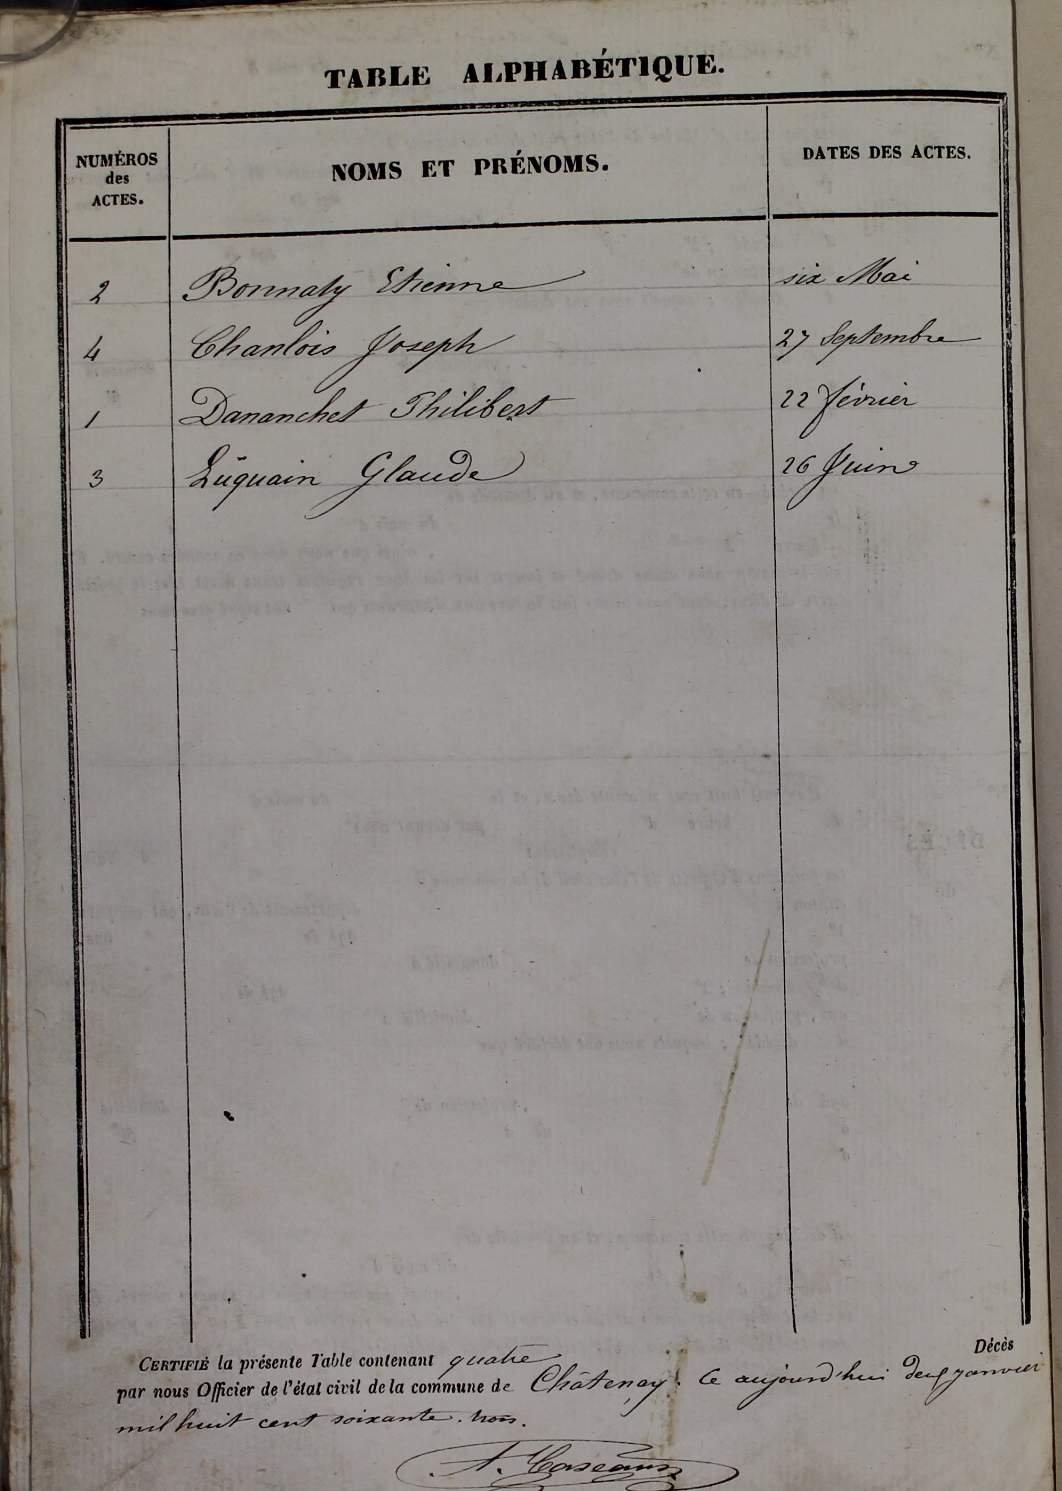 TABLE ALPHABÉTIQUE.
NUMÉROS des ACTES. NOMS ET PRÉNOMS. DATES DES ACTES.
2 Bonnaty Etienne six Mai
4 Chanlois Joseph 27 Septembre
1 Dananchet Philibert 22 février
3 Luquain Glaude 26 Juin
Décès
CERTIFIÉ la présente Table contenant quatre
par nous Officier de l'état civil de la commune de Châtenay. Ce aujourd'hui deux janvier
mil huit cent soixante trois.